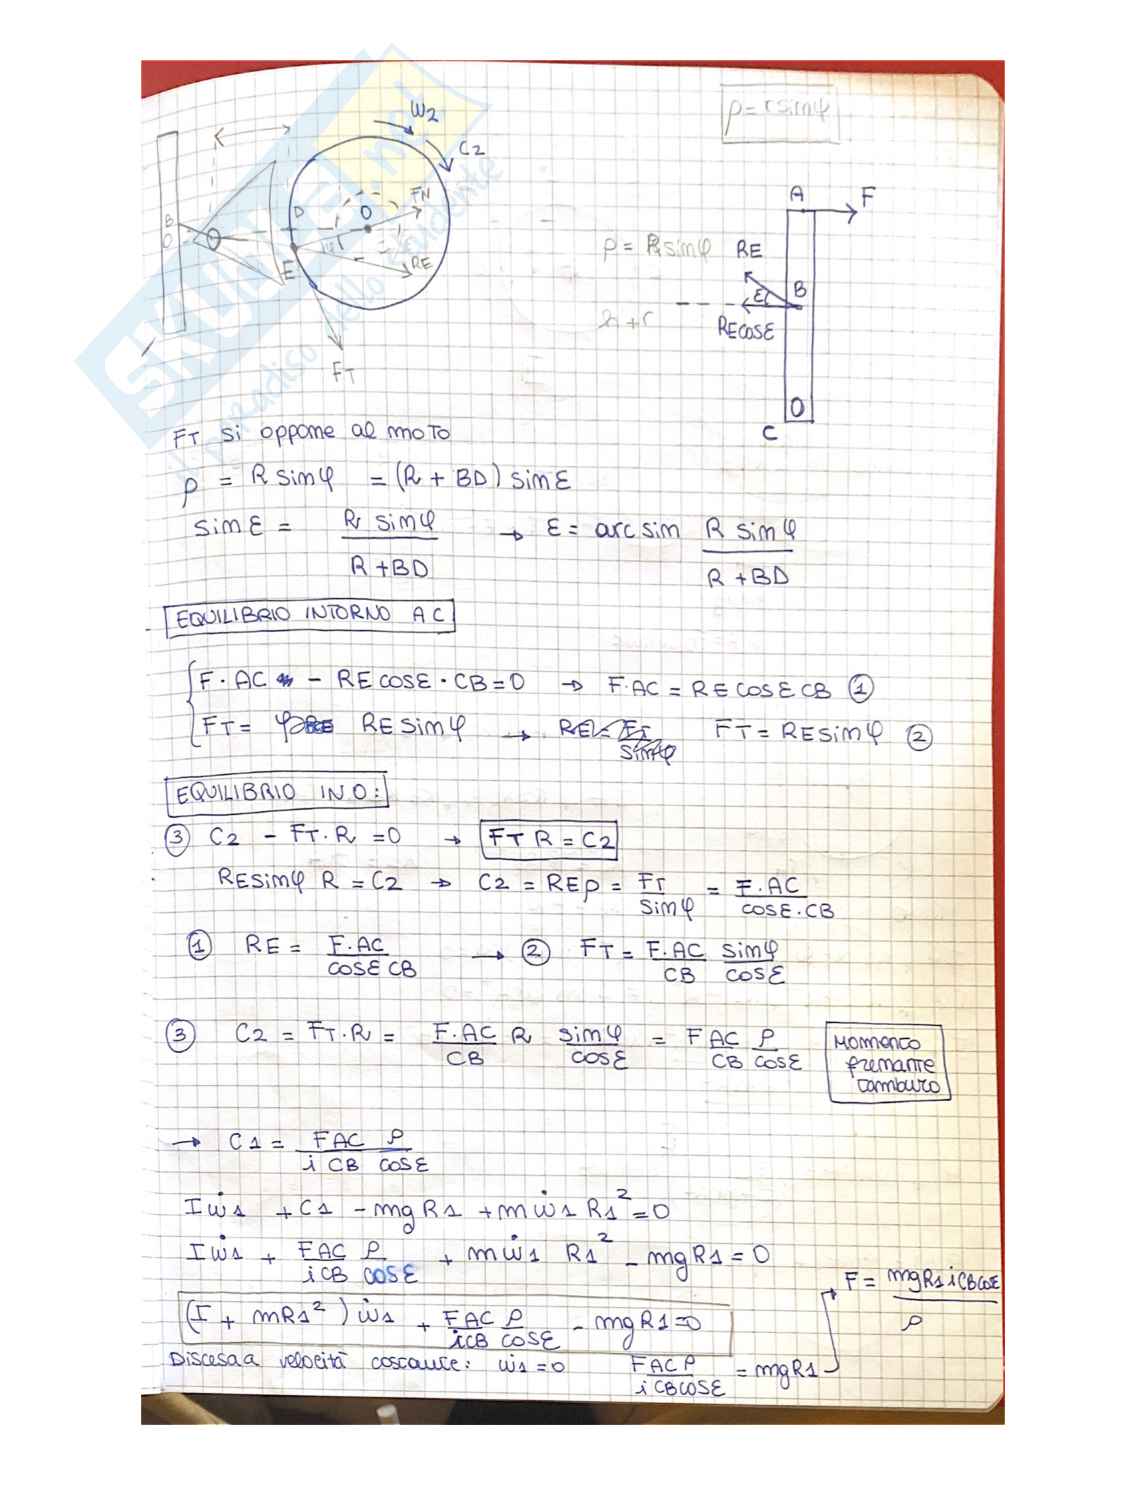 ρ = r sinφ
W2
C2
B
D
O
FN
RE
E
FT
A
F
ρ = R sinφ
RE
ε
B
r + r
RE cosε
O
C
FT si oppone al moto
ρ = R sinφ = (R + BD) sinε
sinε = R sinφ / R + BD → ε = arcsin R sinφ / R + BD
EQUILIBRIO INTORNO A C
F · AC - RE cosε · CB = 0 → F·AC = RE cosε CB ①
FT = RE sinφ → FT = RE sinφ ②
EQUILIBRIO IN O:
③ C2 - FT·R = 0 → FT R = C2
RE sinφ R = C2 → C2 = REρ = FT / sinφ = F·AC / cosε·CB
① RE = F·AC / cosε CB → ② FT = F·AC / CB sinφ / cosε
③ C2 = FT·R = F·AC / CB R sinφ / cosε = F AC / CB ρ / cosε
Momento
frenante
tamburo
→ C1 = F AC ρ / i CB cosε
Iẇ1 + C1 - mg R1 + mẇ1 R1² = 0
Iẇ1 + F AC ρ / i CB cosε + mẇ1 R1² - mg R1 = 0
(I + mR1²) ẇ1 + F AC ρ / i CB cosε - mg R1 = 0
F = mg R1 i CB cosε / ρ
Discesa a velocità costante: ẇ1 = 0 F AC ρ / i CB cosε = mg R1